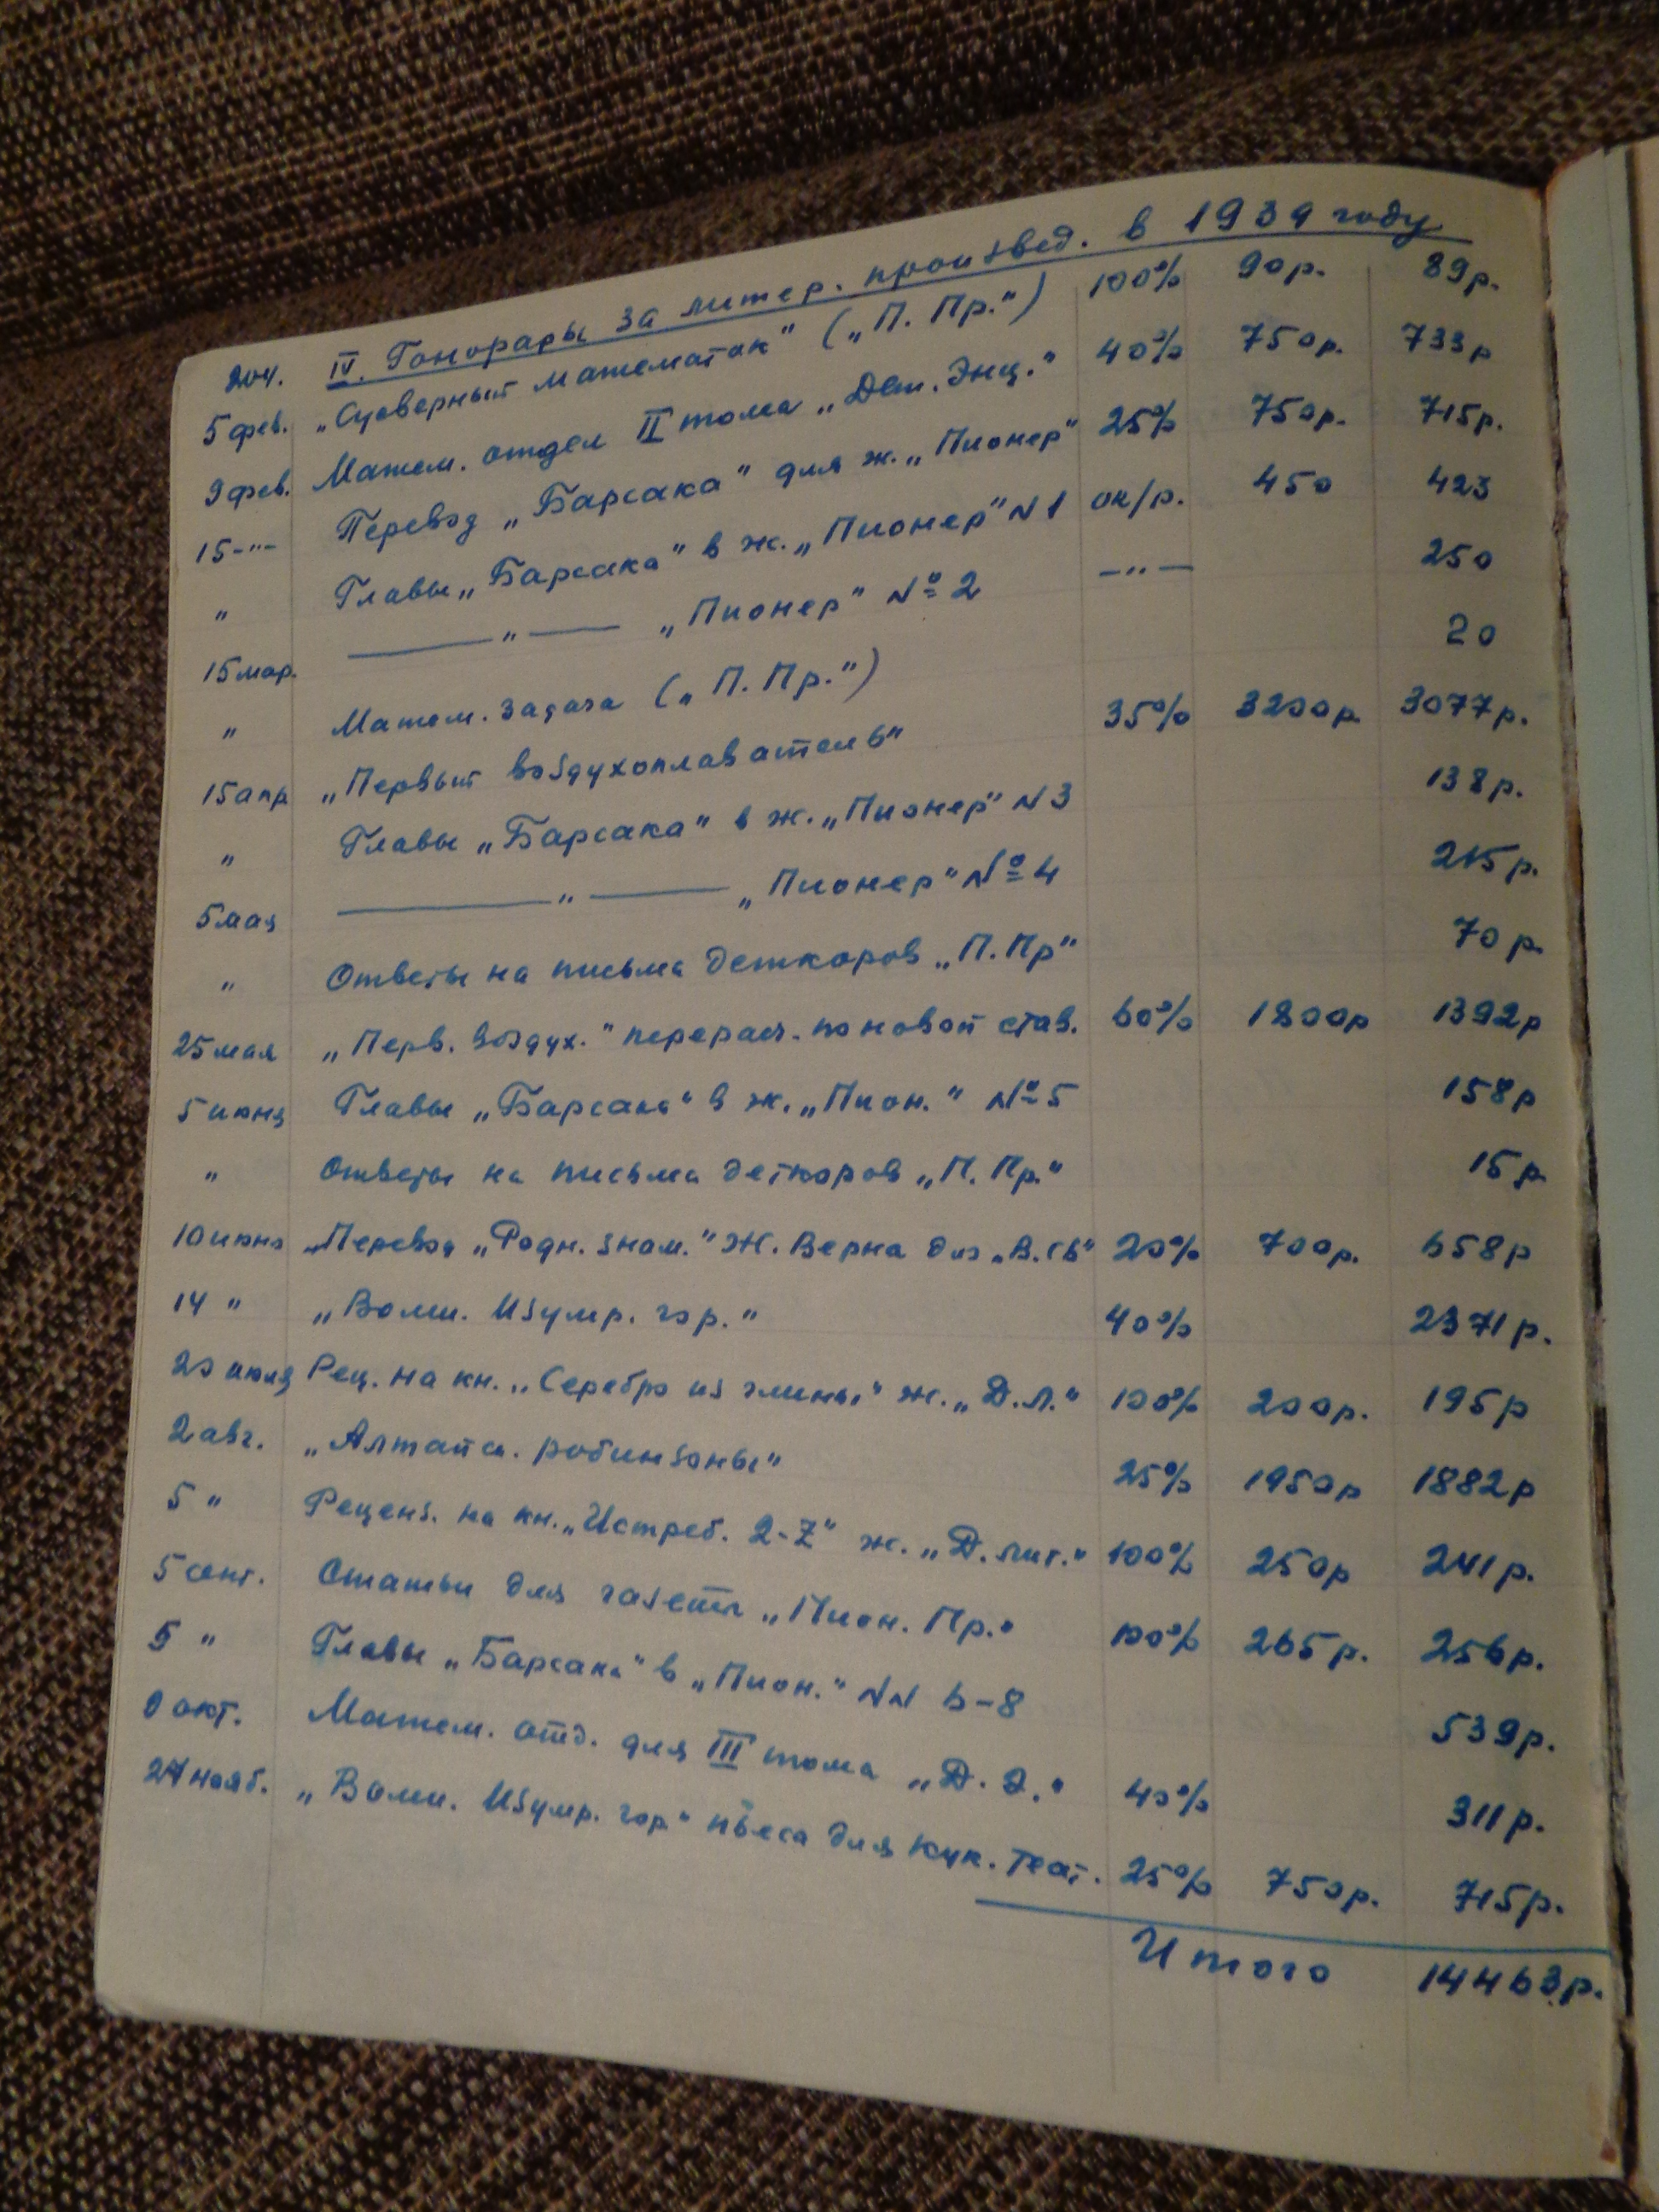 204. IV. Гонорары за литер. произвед. в 1939 году
5 фев. „Суеверный математик" („П. Пр.") 100% 90р. 89р.
9 фев. Матем. отдел II тома „Дет. Энц." 40% 750р. 733р
15-"- Перевод „Барсака" для ж. „Пионер" 25% 750р. 715р.
" Главы „Барсака" в ж. „Пионер" N1 ок/р. 450 423
15 мар. —"— „Пионер" № 2 —"— 250
" Матем. задача („П. Пр.") 20
15 апр „Первый воздухоплаватель" 35% 3200р. 3077р.
" Главы „Барсака" в ж. „Пионер" N3 138р.
5 мая —"— „Пионер" № 4 215р.
" Ответы на письма деткоров „П. Пр" 70 р.
25 мая „Перв. воздух." перерасч. по новой став. 60% 1800р 1392р
5 июня Главы „Барсака" в ж. „Пион." № 5 158р
" Ответы на письма деткоров „П. Пр." 15 р.
10 июня „Перевод „Родн. знам." Ж. Верна для „В. св" 20% 700р. 658р
14 " „Волш. Изумр. гор." 40% 2371р.
20 июля Рец. на кн. „Серебро из глины" ж. „Д. Л." 100% 200р. 195р
2 авг. „Алтайск. робинзоны" 25% 1950р 1882р
5 " Реценз. на кн. „Истреб. 2-Z" ж. „Д. лит." 100% 250р 241р.
5 сент. Статьи для газеты „Пион. Пр." 100% 265р. 256р.
5 " Главы „Барсака" в „Пион." NN 6-8 539р.
окт. Матем. отд. для III тома „Д. Э." 40% 311р.
27 нояб. „Волш. Изумр. гор" пьеса для кук. теат. 25% 750р. 715р.
Итого 14463р.